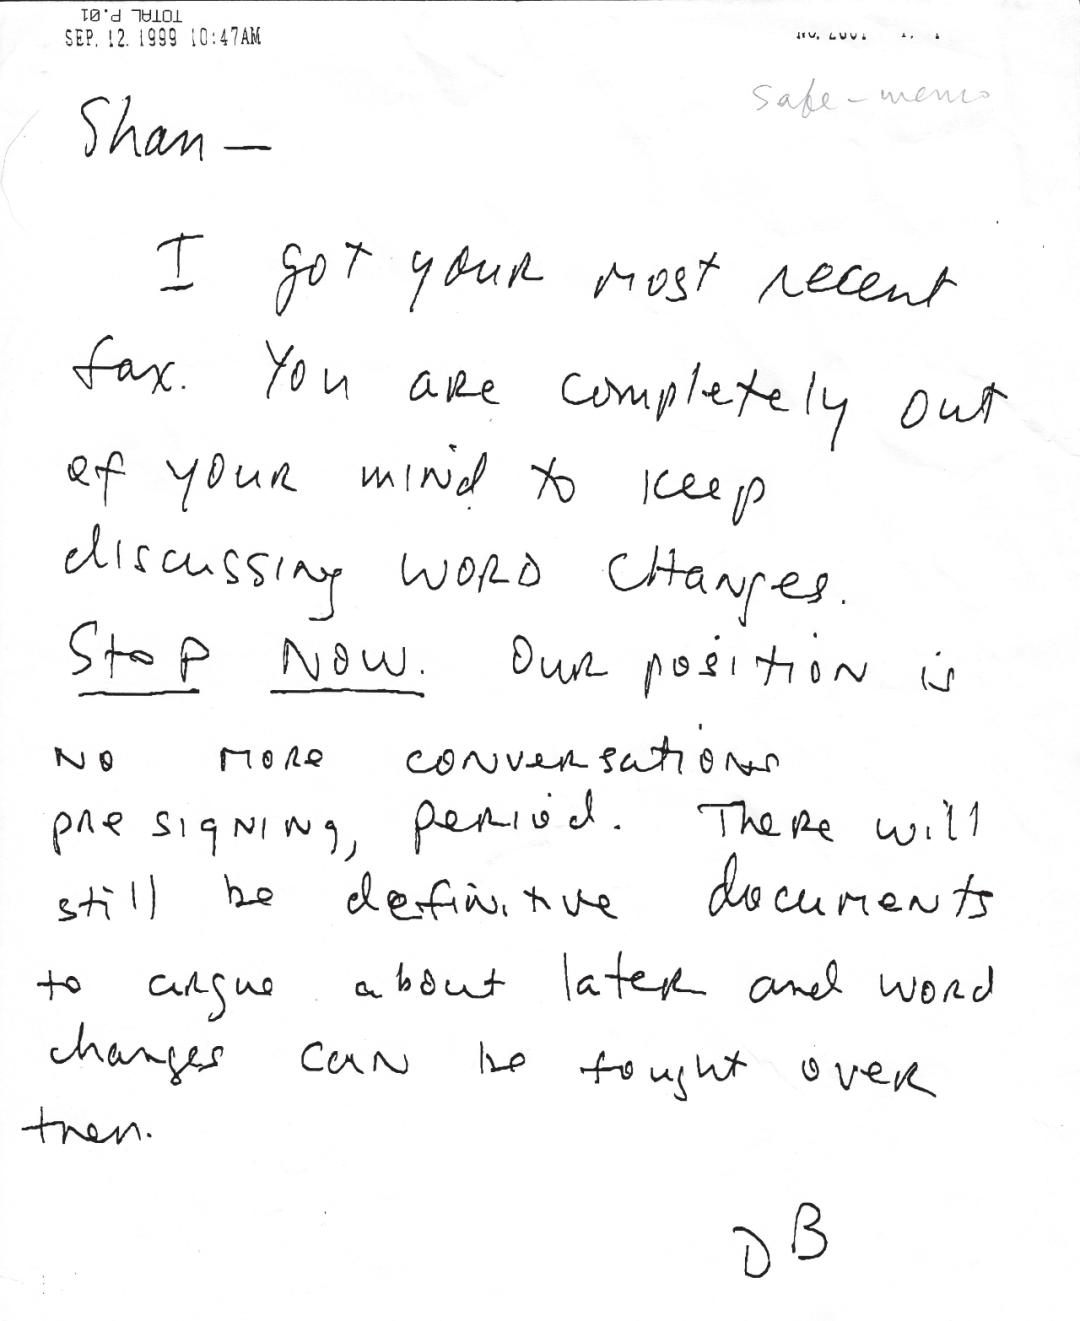 TOTAL P.01
SEP. 12. 1999 10:47AM
Safe - memo
Shan —
I got your most recent
fax. You are completely out
of your mind to keep
discussing word changes.
Stop Now. Our position is
no more conversations
pre signing, period. There will
still be definitive documents
to argue about later and word
changes can be fought over
then.
DB